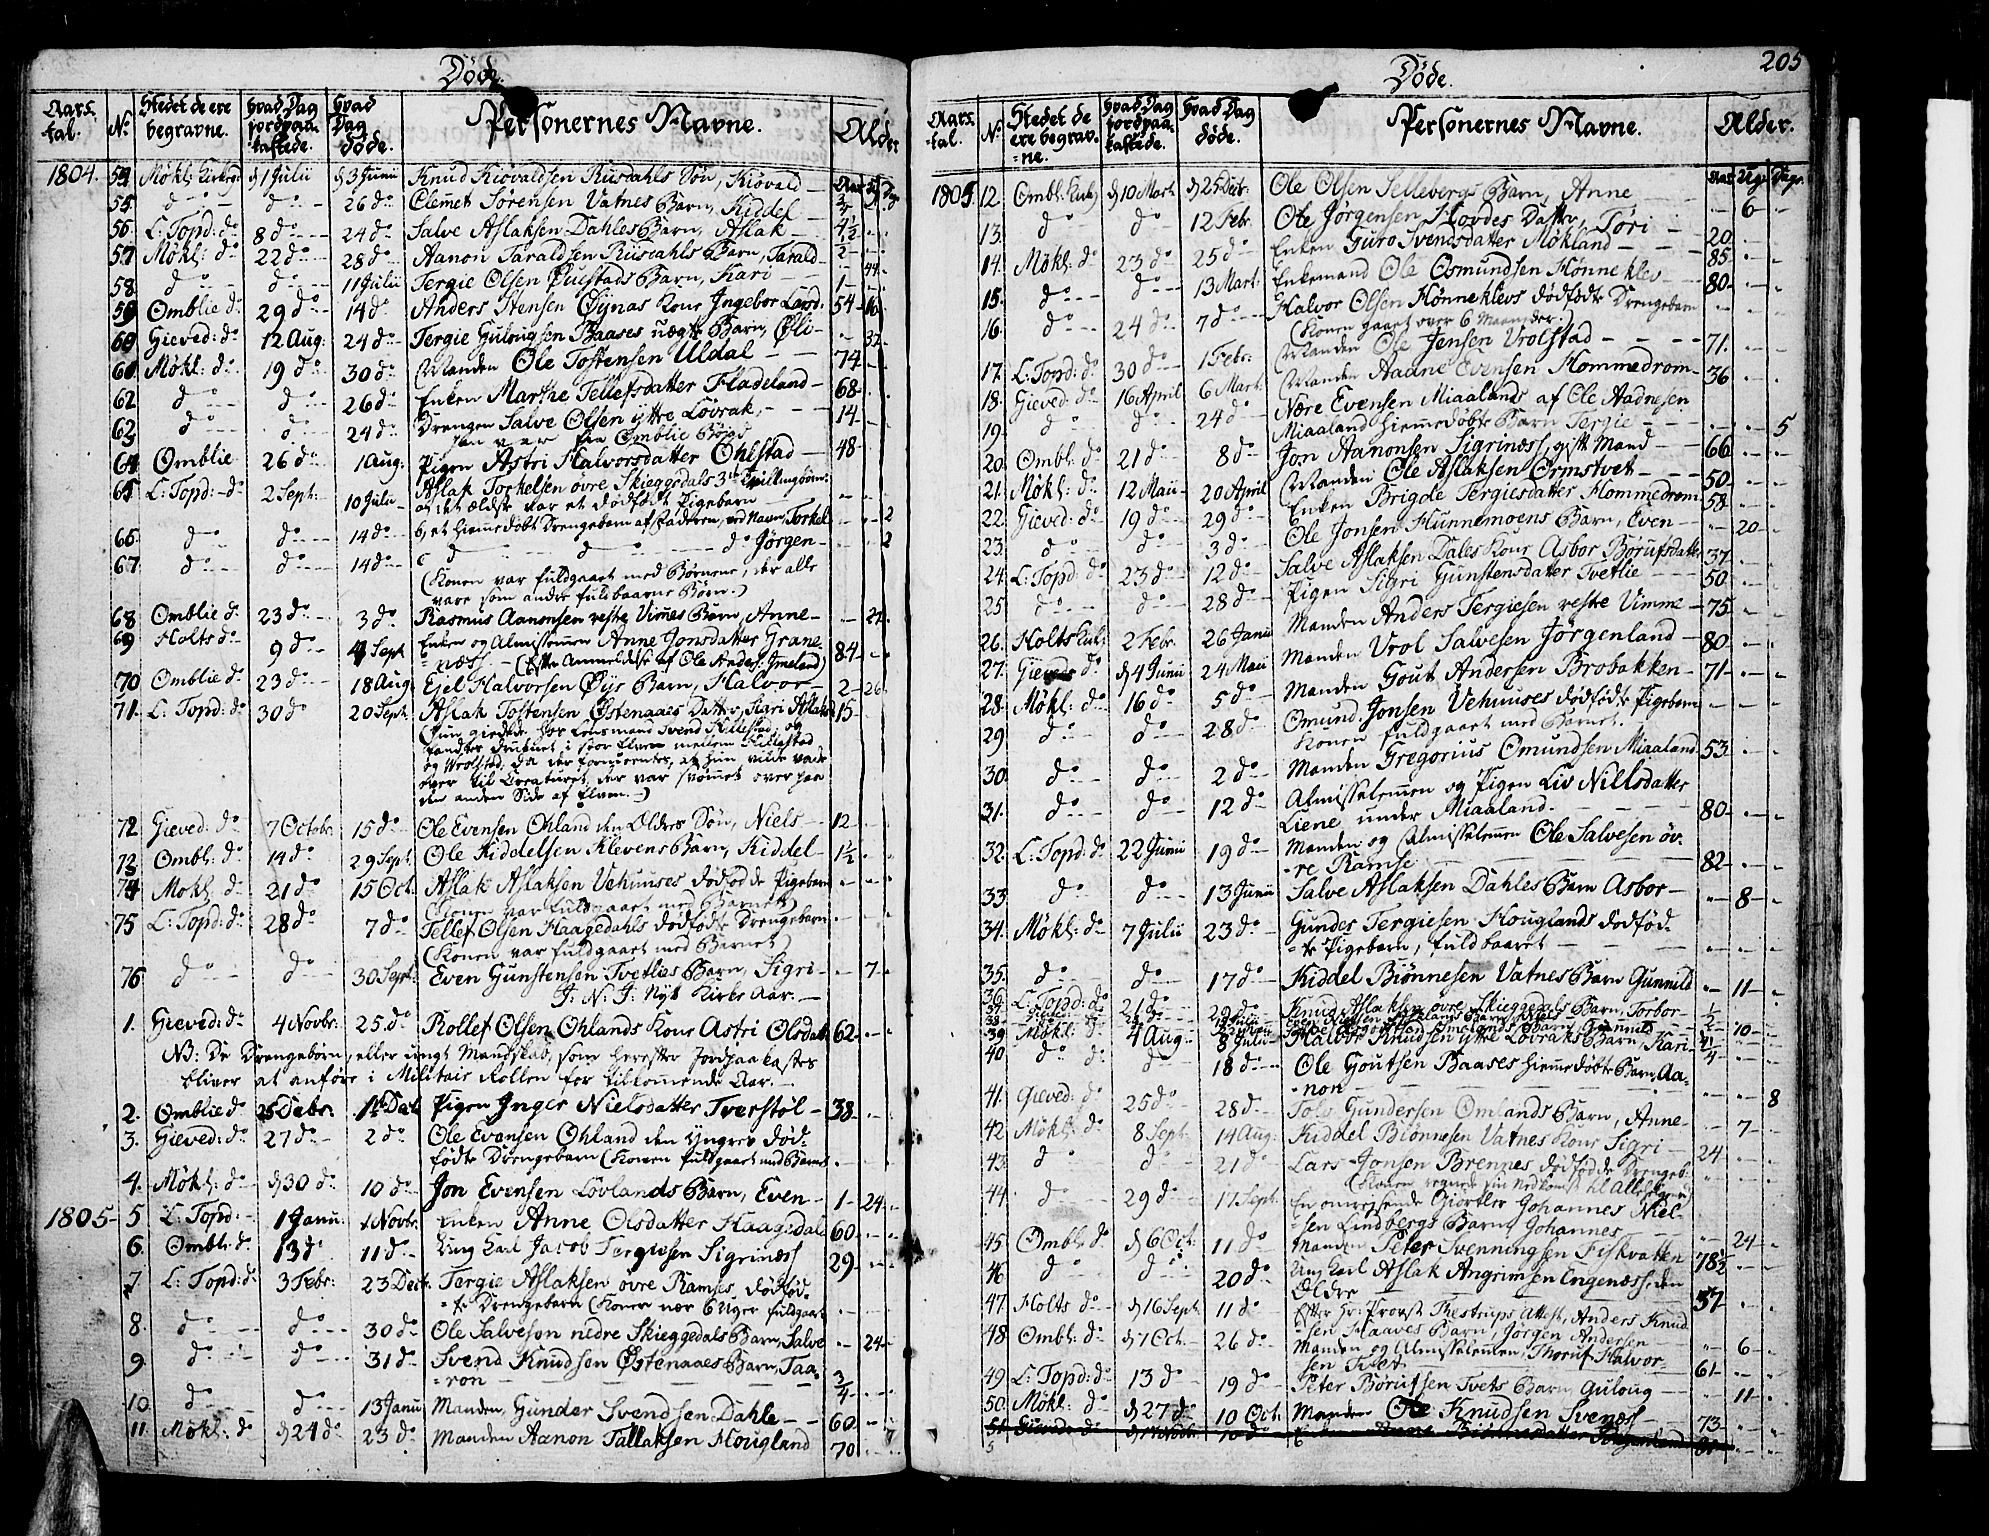 Døde.
Aars tal. | No | Stedet de ere begravne. | Hvad Dag jordpaakastede. | Hvad Dag døde. | Personernes Navne. | Alder
1804. 54 Møkl: Kirkeg: d 1 Julii d 3 Junii Knud Kiøvaldsen Rusdahls Søn, Kiøvald
55 do do 26 do Clemet Sørensen Vatnes Barn, Kiddel
56 L: Topd: do 8 do 24 do Salve Aslaksen Dahles Barn, Aslak 4½
57 Møkl: do 22 do 28 do Aanon Taraldsen Rusdahls Barn, Tarald 2
58 do do 11 Julii Tergie Olsen Puustads Barn, Kari 1
59 Omblie do 29 do 14 do Anders Stensen Øynas Kone Ingebor Larsd: 54
60 Gieved: do 12 Aug: 24 do Tergie Gulougsen Baases uægte Barn, Øli 32
61 Møkl: do 19 do 30 do Manden Ole Tostensen Uldal 74
62 do do 26 do Enken Marthe Tellefsdatter Fladeland 68
62 do do 24 do Drengen Salve Olsen ytre Løvrak, 14
Han var fra Omblie Bøgd
64 Omblie 26 do 1 Aug: Pigen Astri Halvorsdatter Ohlstad 48
65 L: Topd: do 2 Sept: 10 Julii Aslak Torkelsen øvre Skieggedals 3de Tvillingbørn:
a, det ældste var et dødfødt Pigebarn
66 do do 14 do b, et hiemedøbt Drengebarn af Faderen, ved Navn, Torkel 2
67 do do 14 do c do do do Jørgen 2
(Konen var fuldgaaet med Børnene, der alle
vare som andre fuldbaarne Børn.)
68 Omblie do 23 do 3 do Rasmus Aanonsen vestre Vimes Barn, Anne 22
69 Holts do 9 do 4 Sept Enken og Almisselemen Anne Jonsdatter Grane-
næss (Efter Anmeldelse af Ole Anders: Jmeland) 84
70 Omblie do 23 do 18 Aug: Ejel Halvorsen Øys Barn, Halvor 2 26
71 L: Topd: do 30 do 20 Sept Aslak Tostensen Østenaaes Datter, Kari Aslaksd 15
(Hun giedde for Lensmand Svend Hillestad og
fandtes druknet i stor Elven mellem Hillestad
og Vrolstad, da der formeentes, at hun vilde vade
over til Creaturet, der var svømmet over paa
den anden Side af Elven.)
72 Gieved: do 7 Octobr 15 do Ole Evensen Ohland den Oldres Søn, Niels 12
73 Ombl: do 14 do 29 Sept Ole Kiddelsen Klevens Barn, Kiddel 1½
74 Møkl do 21 do 15 Oct. Aslak Aslaksen Vehuuses dødfødde Pigebarn
(Konen var fuldgaaet med Barnet)
75 L: Topd: do 28 do 7 do Tellef Olsen Haagedahls dødfødte Drengebarn
(Konen var fuldgaaet med Barnet)
76 do do 30 Sept: Even Gunstensen Tvetlies Barn, Sigri 7
J: N: J: Nyt Kirke Aar.
1. Gieved: do 4 Novbr: 25 do Rollef Olsen Ohlands Kone Astri Olsdatt 62
NB: De Drengebørn, eller ungt Mandskab, som herefter Jordpaakastes
bliver at anføre i Militair Rollen for tilkommende Aar.
2. Omblie do 26 Decbr. 14 Dec Pigen Inger Nielsdatter Tverstøl 38
3. Gieved: do 27 do 2 do Ole Evensen Ohland den Yngres død-
fødte Drengebarn (Konen fuldgaaet med Barnet
4. Møkl: do d 30 do 10 do Jon Evensen Løvlands Barn, Even 1 24
1805 5 L: Topd: 1 Janu: 1 Novbr. Enken Anne Olsdatter Haagedal 60
6 Ombl: do 13 do 11 do Ung Karl Jacob Tergiesen Sigrinæss 29
7 L: Topd: do 3 Febr: 23 Decr. Tergie Aslaksen øvre Ramses dødfød-
te Drengebarn (Konen nær 6 Uger fuldgaaet
8. do do 30 do Ole Salveson nedre Skieggedals Barn, Salve 24
9 do do 31 do Svend Knudsen Østenaaes Barn, Taa-
ron 3/4
10 do do 13 Janu Manden, Gunder Svendsen Dahle 60
11 Møkl: do d 24 do 23 do Manden Aanon Tallaksen Hougland 70
Døde. 205
Aars tal. | No | Stedet de ere begravne. | Hvad Dag jordpaakastede. | Hvad Dag døde. | Personernes Navne. | Alder.
Aar Uge Dage
1805. 12. Ombl: Kirkg d 10 Mart. d 25 Decbr: Ole Olsen Sellebergs Barn, Anne 6
13. do do 12 Febr. Ole Jørgensen Hovdes Datter, Tøri 20
14. Møkl: do 23 do 25 do Enken Guro Svendsdatter Møkland 85
15. do do 13 Mart. Enkemand Ole Osmundsen Hønneklev 80
16. do 24 do 7 do Halvor Olsen Hønneklevs dødfødte Drengebarn
(Konen gaaet over 6 Maaneder.)
17. L: Topd: do 30 do 1 Febr. Manden Ole Jensen Vrolstad 71.
18. Gieved: do 16 April 6 Mart. Manden Aanne Evensen Hommedrom 36
19. do do 24 do Nære Evensen Miaalands af Ole Aadnesen
Miaaland hiemedøbte Barn Tergie 5
20. Ombl: do 21 do 8 do Jon Aanonsen Sigrinæss, gift Mand 66
21. Møkl: do 12 Maii 20 April Manden Ole Aslaksen Ormstvet 50
22. Gieved: do 19 do 29 do Enken Brigde Tergiesdatter Hommedrom 58
23. do do 3 do Ole Jonsen Hunnemoens Barn, Even 20
24. L: Topd: do 23 do 12 do Salve Aslaksen Dales Kone Asbor Børufsdatter 37
25 do do 28 do Pigen Sigri Gunstensdatter Tvetlie 50
26. Holts Kirk: 2 Febr. 26 Janu Manden Anders Tergiesen vestre Vimme 75
27. Gieved: do d 4 Junii 24 Maii Manden Vrol Salvesen Jørgenland 80
28. Møkl: do 16 do 5 do Manden Gout Andersen Brobakken 71
29 do do 28 do Omund Jonsen Vehuuses dødfødte Pigebarn
Konen fuldgaaet med Barnet.
30. do do 2 do Manden Gregorius Omundsen Miaaland 53
31. do do 12 do Almisselemen og Pigen Liv Nielsdatter
Liene under Miaaland. 80
32. L: Topd: do 22 Junii 19 do Manden og Almisselemen Ole Salvesen øv-
re Ramse 82
33. do do 13 Junii Salve Aslaksen Dahles Barn Asbor 8
34. Møkl: do 7 Julii 23 do Gunder Tergiesen Houglands dødfød-
te Pigebarn, fuldbaaret
35. do do 17 do Kiddel Biønnesen Vatnes Barn Gunnild 11
36. L: Topd: do 21 do 29 do Knud Aslaksen øvre Skieggedals Barn, Torbor ½
39 Møkl: do 4 Aug 8 Julii Halvor Knudsen ytre Løvraks Barn, Kari
40 do do 18 do Ole Goutsen Baases hiemedøbte Barn, Aa-
non 8
41. Gieved: do 25 do 28 do Tolv Gundersen Omlands Barn, Anne 7
42. Møkl: do 8 Sept: 14 Aug: Kiddel Biønnesen Vatnes Kone Sigri 24
43. do do 21 do Lars Jonsen Brennes dødfødte Drengeb.
(Konen regnede sin Nedkomst til Allehelgens
44. do 29 do 17 Sept. En omreisende Giørtler Johannes Niel-
sen Lindbergs Barn, Johannes 24
45. Ombl: do d 6 Oct: 11 do Manden Peter Svenningsen Fiskvatten 78½
46 do do 20 do Ung Karl Aslak Angrimsen Engenæss, den
Oldre 37
47. Holts do d 16 Sept. 11 do Efter Hr: Provst Thestrups Attest, Anders Knud-
sen Haaves Barn, Jørgen Andersen 6
48. Ombl: do d 1 Oct. 26 do Manden og Almisselemen, Thoruf Halvor-
sen Tvet 61
49. L: Topd: do 13 do 19 do Peter Børufsen Tvets Barn, Auloug 11
50. Møkl: do d 27 do 10 Oct. Manden Ole Knudsen Svenæss 73